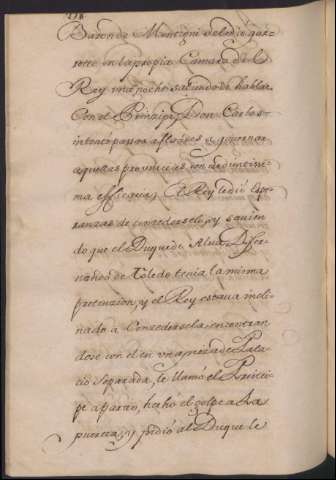 278
Baron de Montigni se le dió gar-
rote en la propia Camara del
Rey una noche saliendo de hablar
con el Principe, Don Carlos
intentó pasar a flandes a governar
aquellas provincias con ardentissi-
ma efficacia; el Rey le dió espe-
ranzas de concederselo, y savien-
do que el Duque de Alva, D. Fer-
nando de Toledo tenia la misma
pretenzion, y el Rey estava incli-
nado a concedersela, encontran-
dose con el en una pieza de Pala-
cio separada, le llamó el Princi-
pe aparte, hechó el golpe a la
puerta, y pidió al Duque le